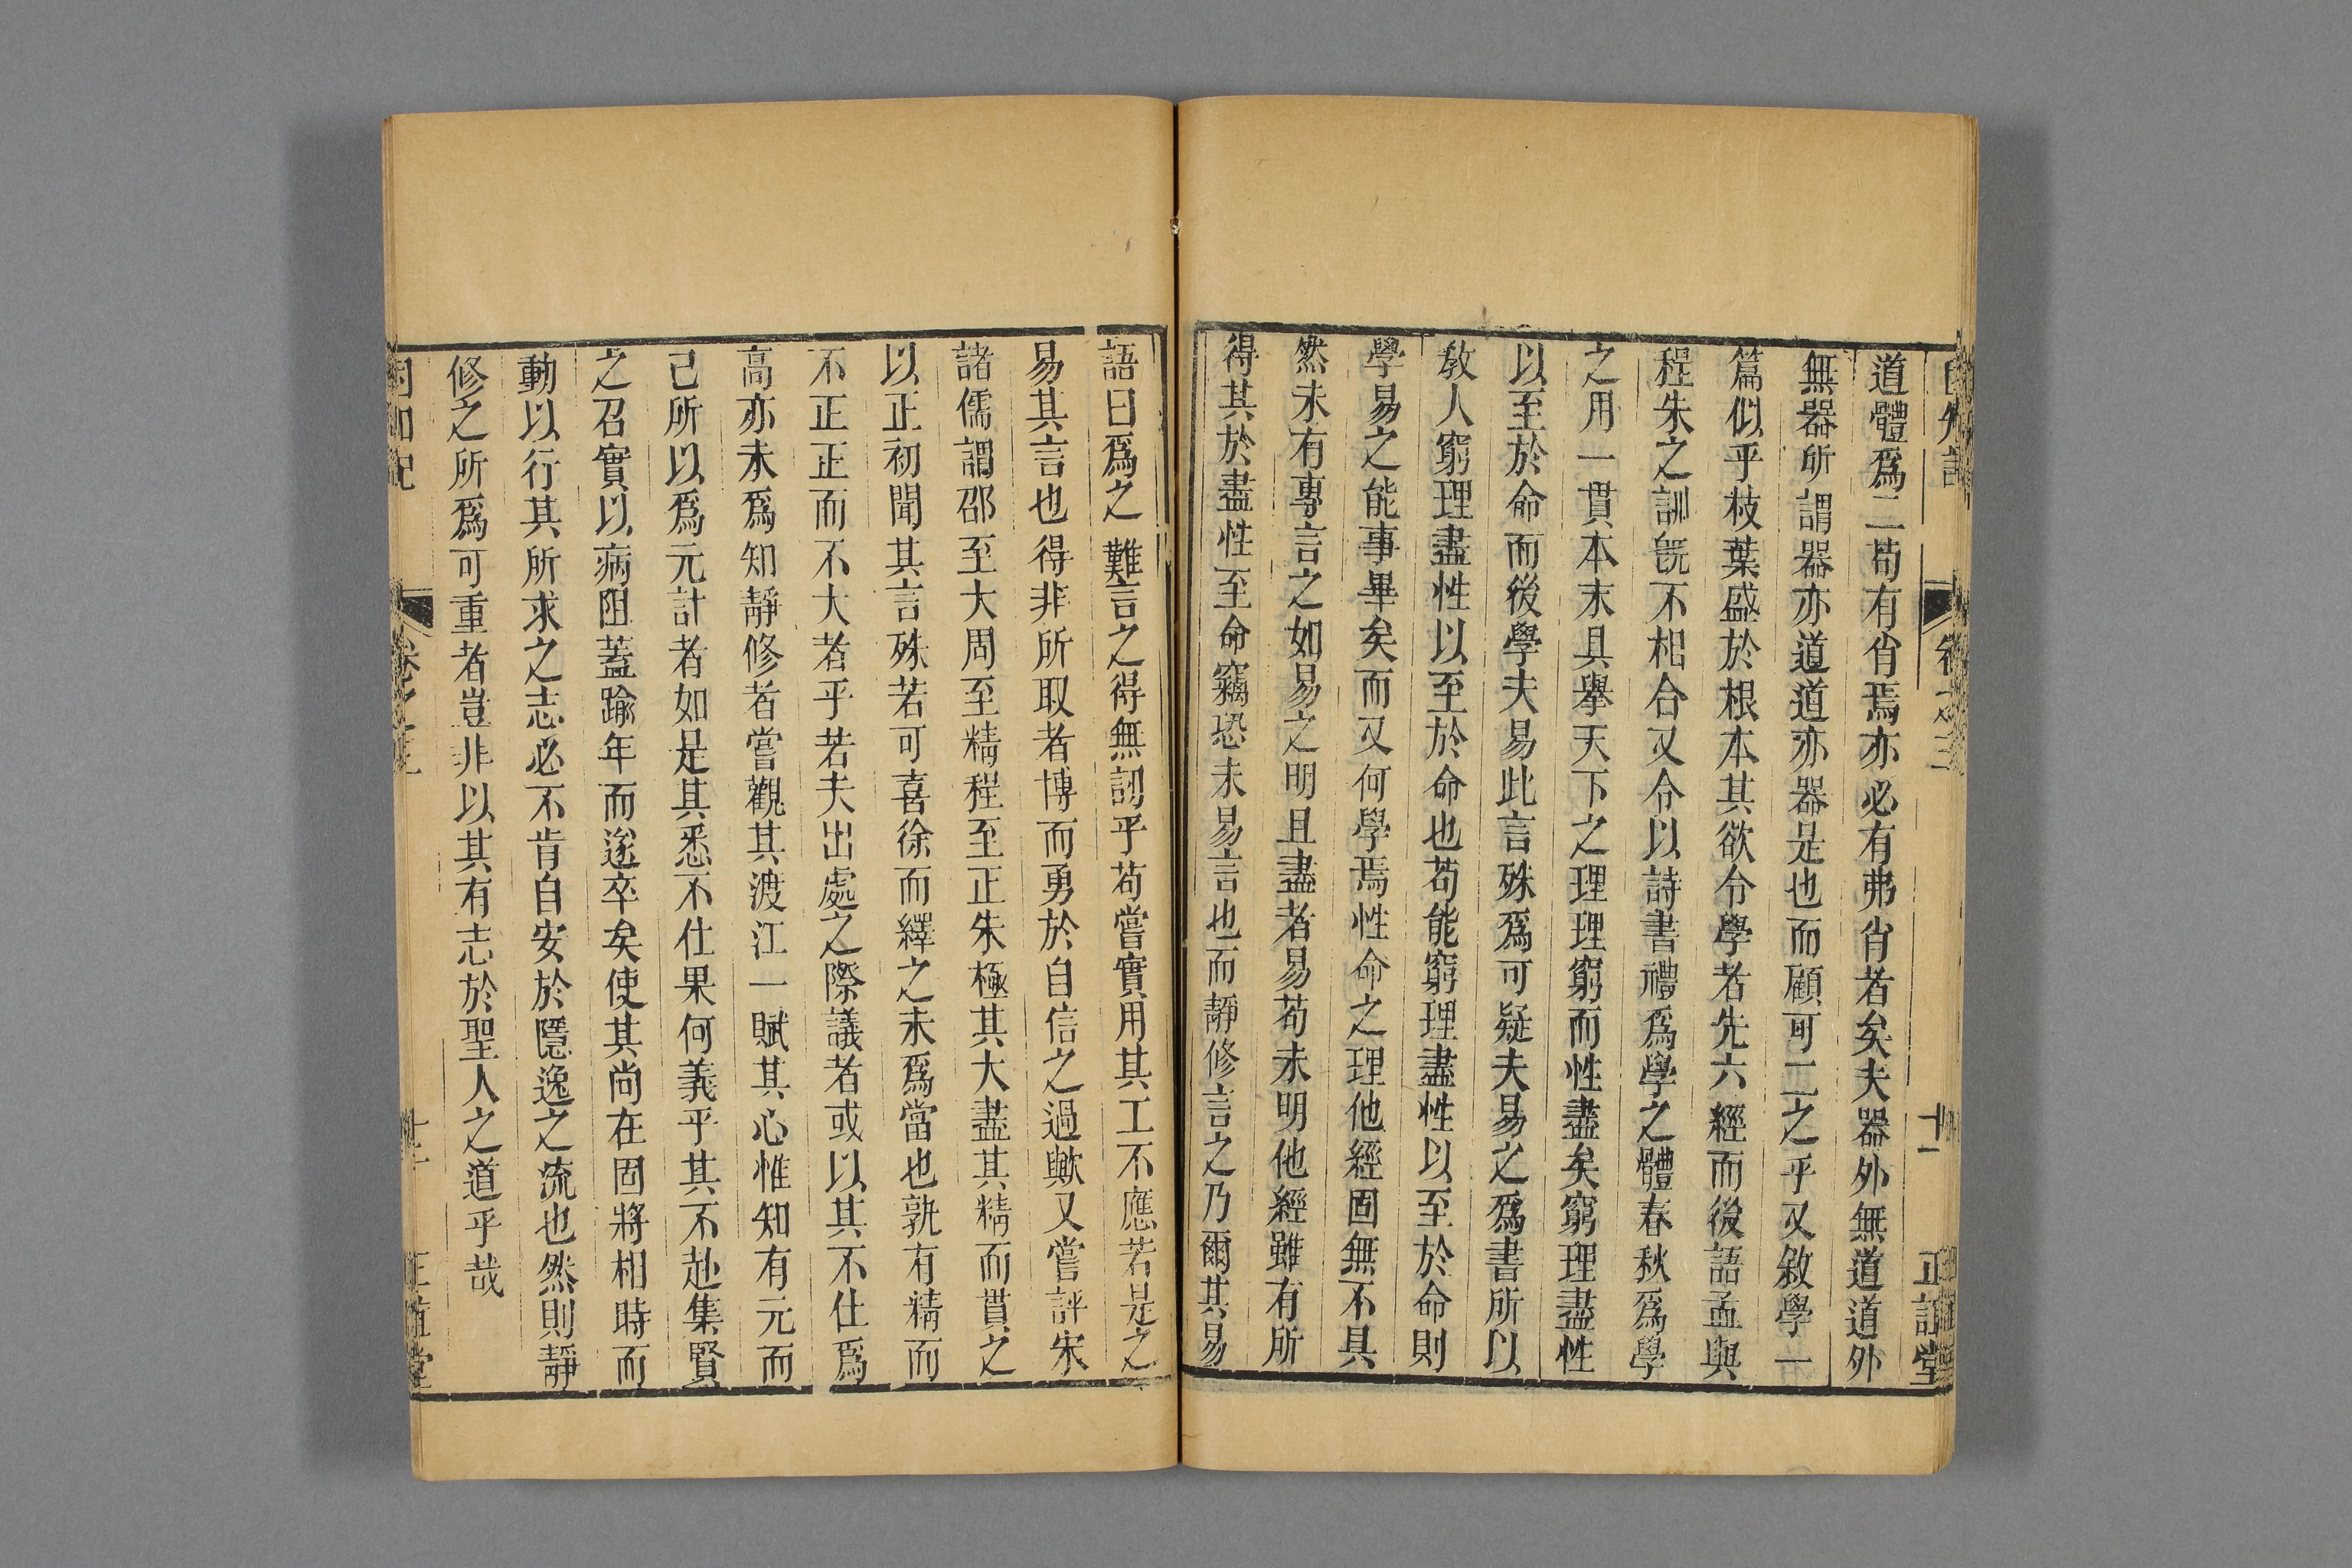 道體爲二苟有肖焉亦必有弗肖者矣夫器外無道道外
無器所謂器亦道道亦器是也而顧可二之乎又敘學一
篇似乎枝葉盛於根本其欲令學者先六經而後語孟與
程朱之訓旣不相合又令以詩書禮爲學之體春秋爲學
之用一貫本末具舉天下之理理窮而性盡矣窮理盡性
以至於命而後學夫易此言殊爲可疑夫易之爲書所以
敎人窮理盡性以至於命也苟能窮理盡性以至於命則
學易之能事畢矣而又何學焉性命之理他經固無不具
然未有專言之如易之明且盡者易苟未明他經雖有所
得其於盡性至命竊恐未易言也而靜修言之乃爾其易
語曰爲之難言之得無訒乎苟嘗實用其工不應若是之
易其言也得非所取者博而勇於自信之過歟又嘗評宋
諸儒謂邵至大周至精程至正朱極其大盡其精而貫之
以正初聞其言殊若可喜徐而繹之未爲當也孰有精而
不正正而不大者乎若夫出處之際議者或以其不仕爲
高亦未爲知靜修者嘗觀其渡江一賦其心惟知有元而
己所以爲元計者如是其悉不仕果何義乎其不赴集賢
之召實以病阻蓋踰年而遂卒矣使其尚在固將相時而
動以行其所求之志必不肯自安於隱逸之流也然則靜
修之所爲可重者豈非以其有志於聖人之道乎哉
十一
正誼堂